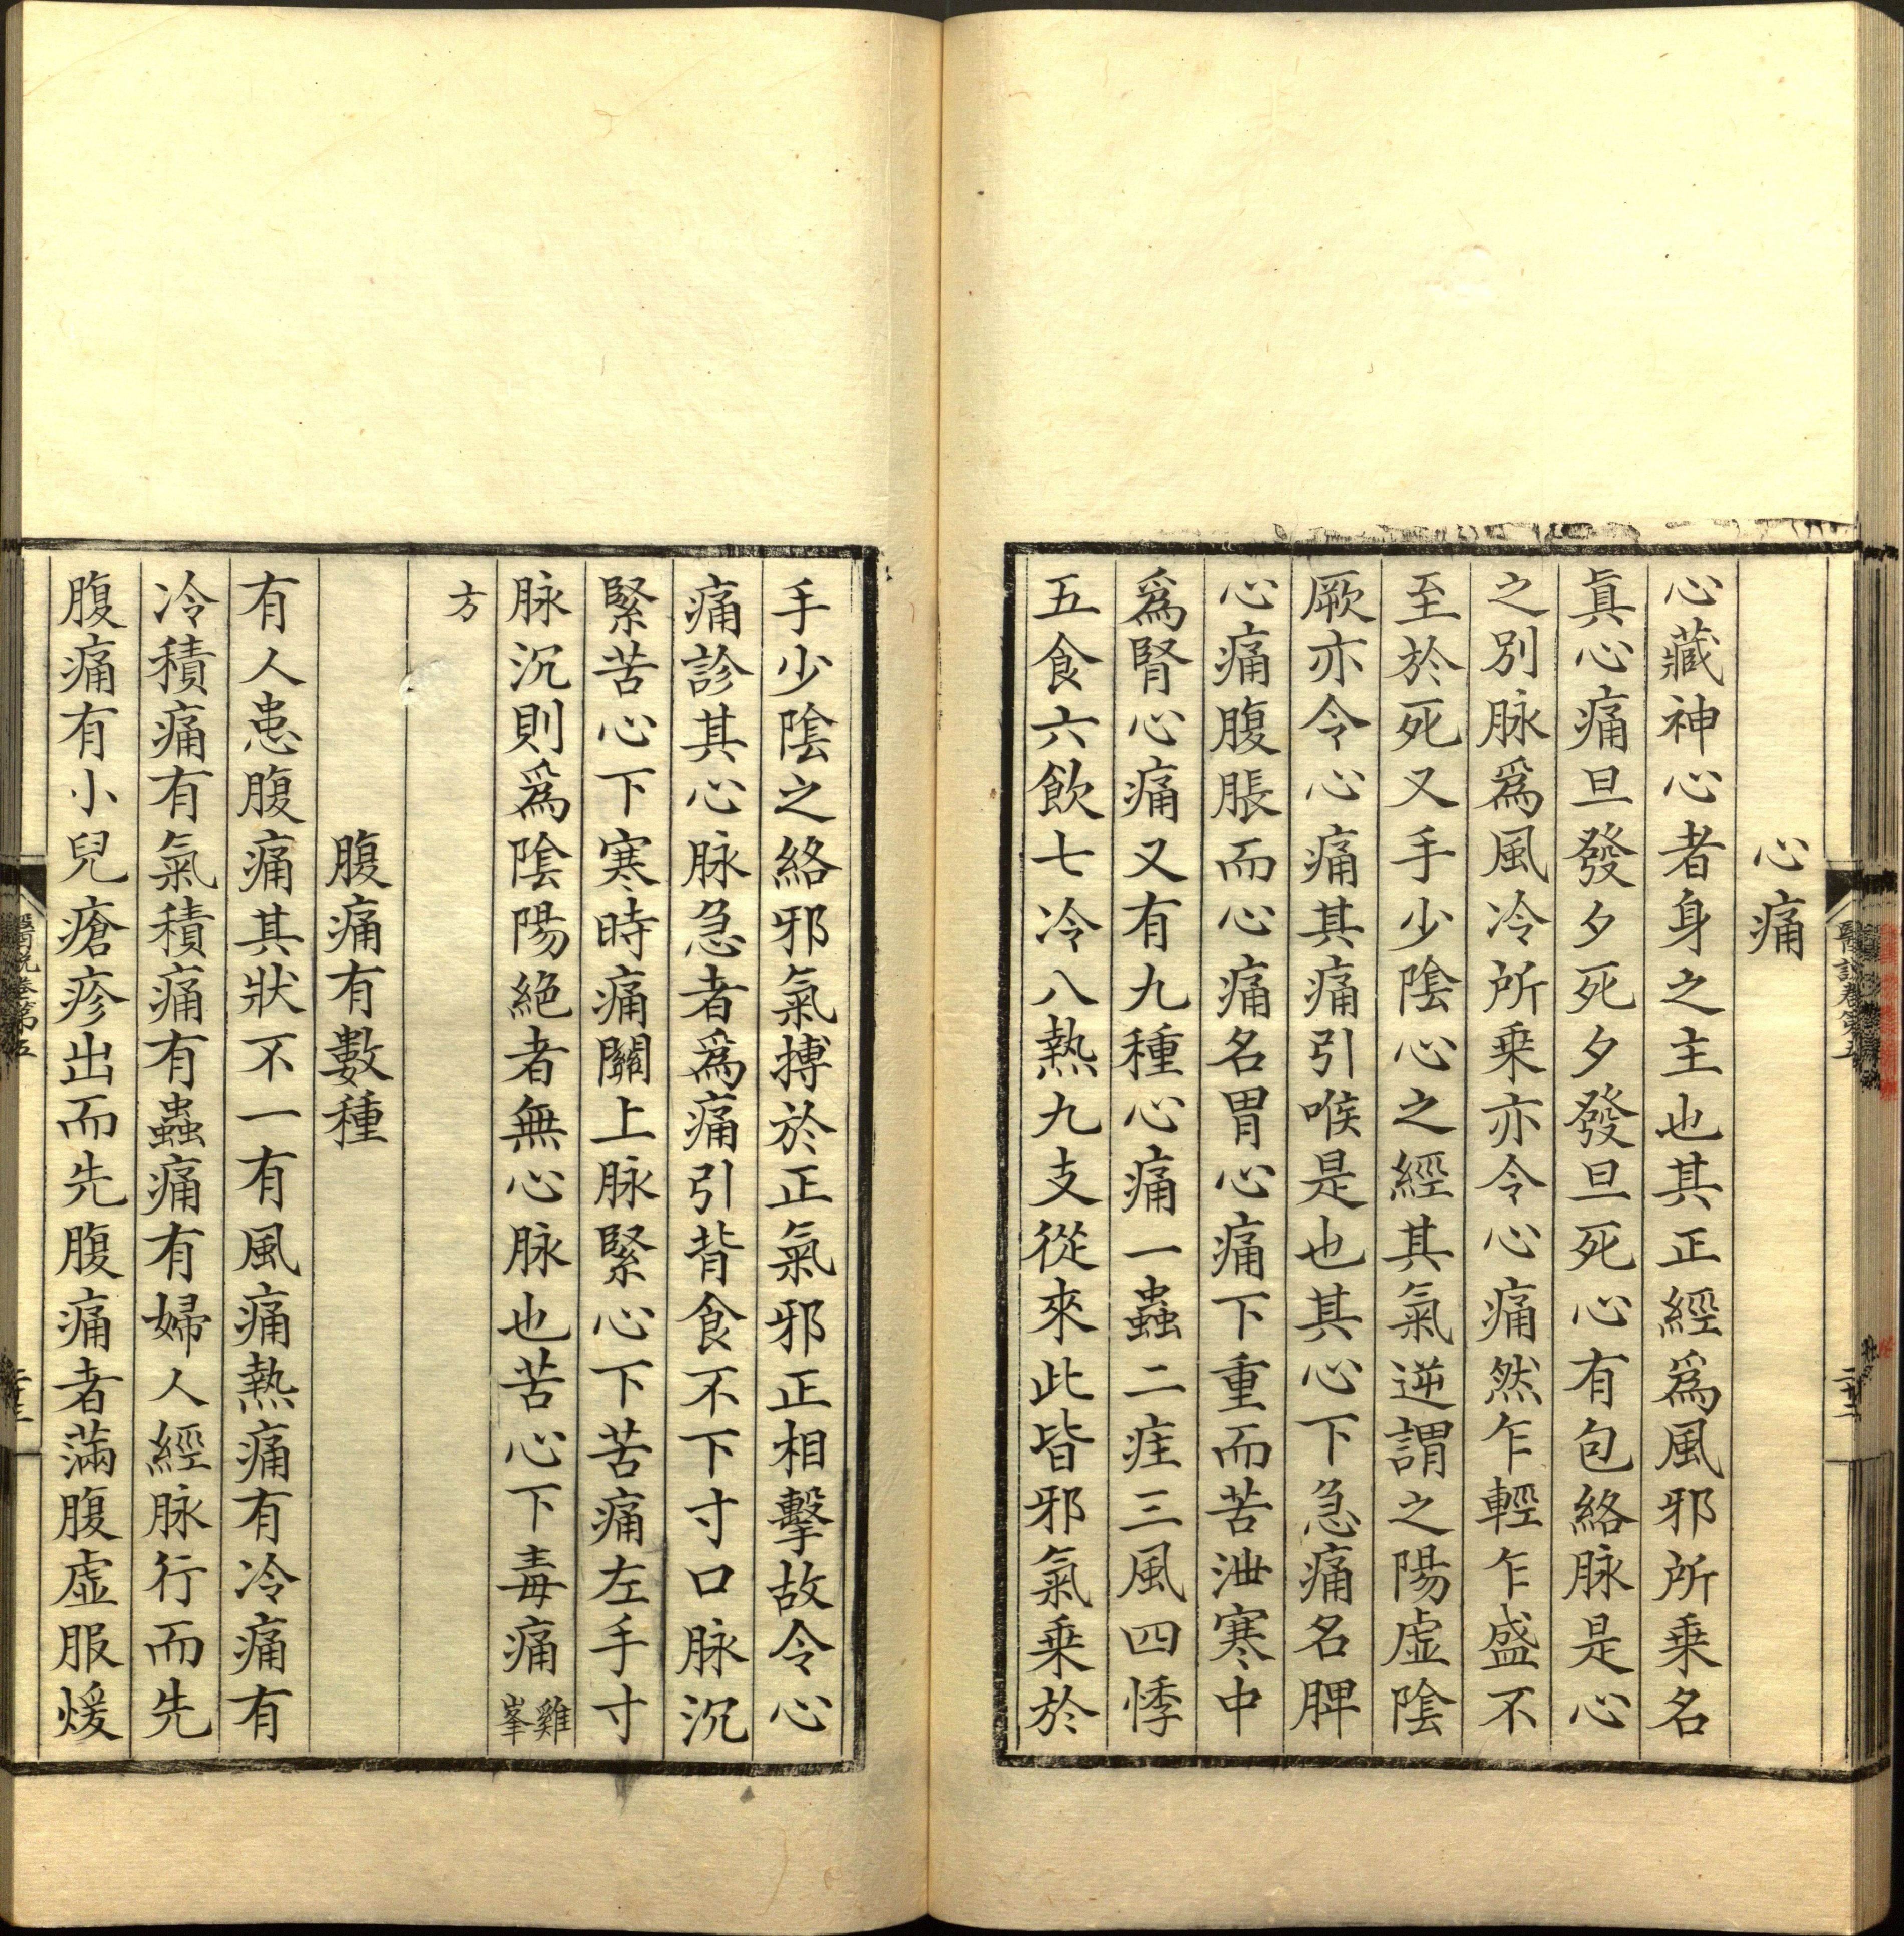 心痛
心藏神心者身之主也其正經爲風邪所乗名
眞心痛旦發夕死夕發旦死心有包絡脉是心
之別脉爲風冷所乗亦令心痛然乍輕乍盛不
至於死又手少陰心之經其氣逆謂之陽虚陰
厥亦令心痛其痛引喉是也其心下急痛名脾
心痛腹脹而心痛名胃心痛下重而苦泄寒中
爲腎心痛又有九種心痛一蟲二疰三風四悸
五食六飲七冷八熱九支從來此皆邪氣乗於
手少陰之絡邪氣搏於正氣邪正相擊故令心
痛診其心脉急者爲痛引背食不下寸口脉沉
緊苦心下寒時痛關上脉緊心下苦痛左手寸
脉沉則爲陰陽絕者無心脉也苦心下毒痛雞峯
方
腹痛有數種
有人患腹痛其狀不一有風痛熱痛有冷痛有
冷積痛有氣積痛有蟲痛有婦人經脉行而先
腹痛有小兒瘡疹出而先腹痛者滿腹虚服煖
醫説卷第五